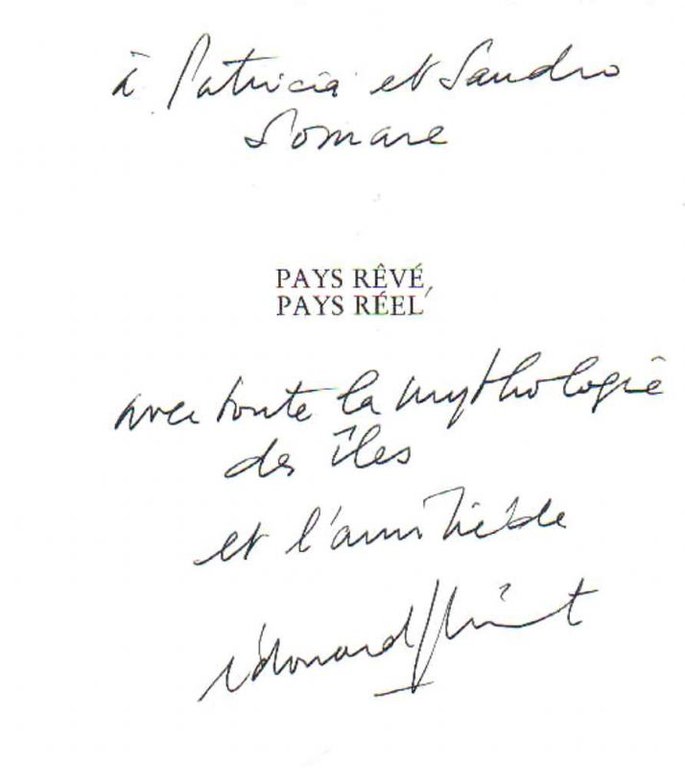 à Patricia et Sandro
Somare
PAYS RÊVÉ,
PAYS RÉEL
avec toute la mythologie
des îles
et l'amitié de
Édouard Glissant